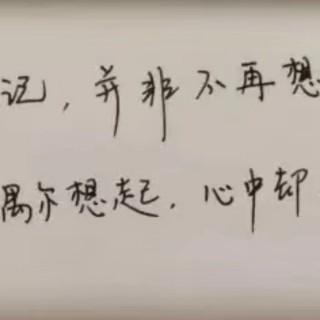 记，并非不再想
偶尔想起，心中却